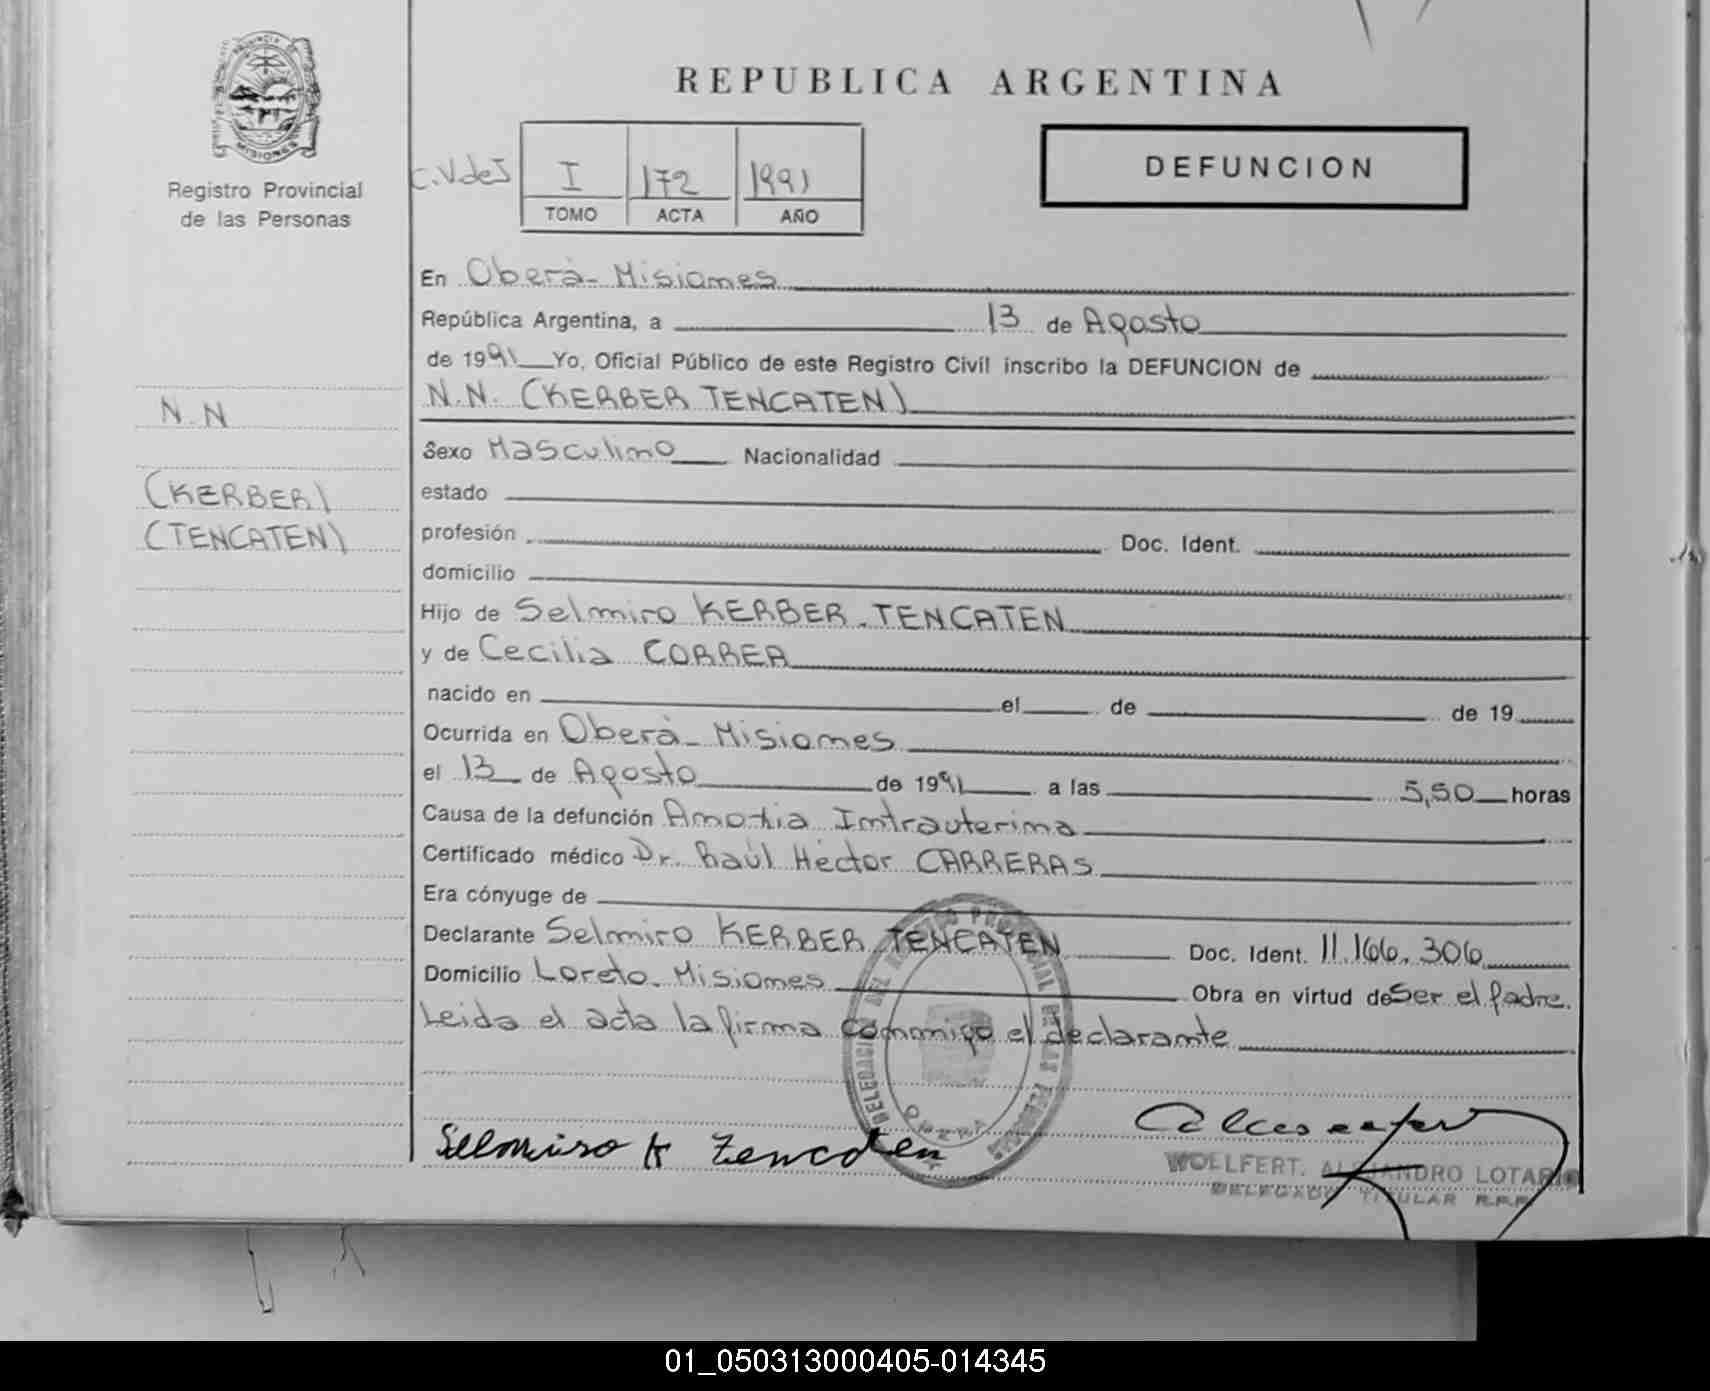 PROVINCIA DE
MISIONES
Registro Provincial
de las Personas
REPUBLICA ARGENTINA
DEFUNCION
C.V de J I 172 1991
TOMO ACTA AÑO
En Oberá - Misiones
República Argentina, a 13 de Agosto
de 1991 Yo, Oficial Público de este Registro Civil inscribo la DEFUNCION de
N.N. (KERBER TENCATEN)
N.N
(KERBER)
(TENCATEN)
Sexo Masculino Nacionalidad
estado
profesión Doc. Ident.
domicilio
Hijo de Selmiro KERBER. TENCATEN
y de Cecilia CORREA
nacido en el de de 19
Ocurrida en Oberá - Misiones
el 13 de Agosto de 1991 a las 5,50 horas
Causa de la defunción Amoxia Intrauterina
Certificado médico Dr. Raúl Héctor CARRERAS
Era cónyuge de
Declarante Selmiro KERBER TENCATEN Doc. Ident. 11.166.306
Domicilio Loreto. Misiones Obra en virtud de Ser el padre.
Leida el acta la firma conmigo el declarante
DELEGACION DEL REGISTRO PROVINCIAL DE LAS PERSONAS
OBERA
Selmiro K Tencaten
WOELFERT. ALEJANDRO LOTARIO
DELEGADO TITULAR R.P.P.
01_050313000405-014345